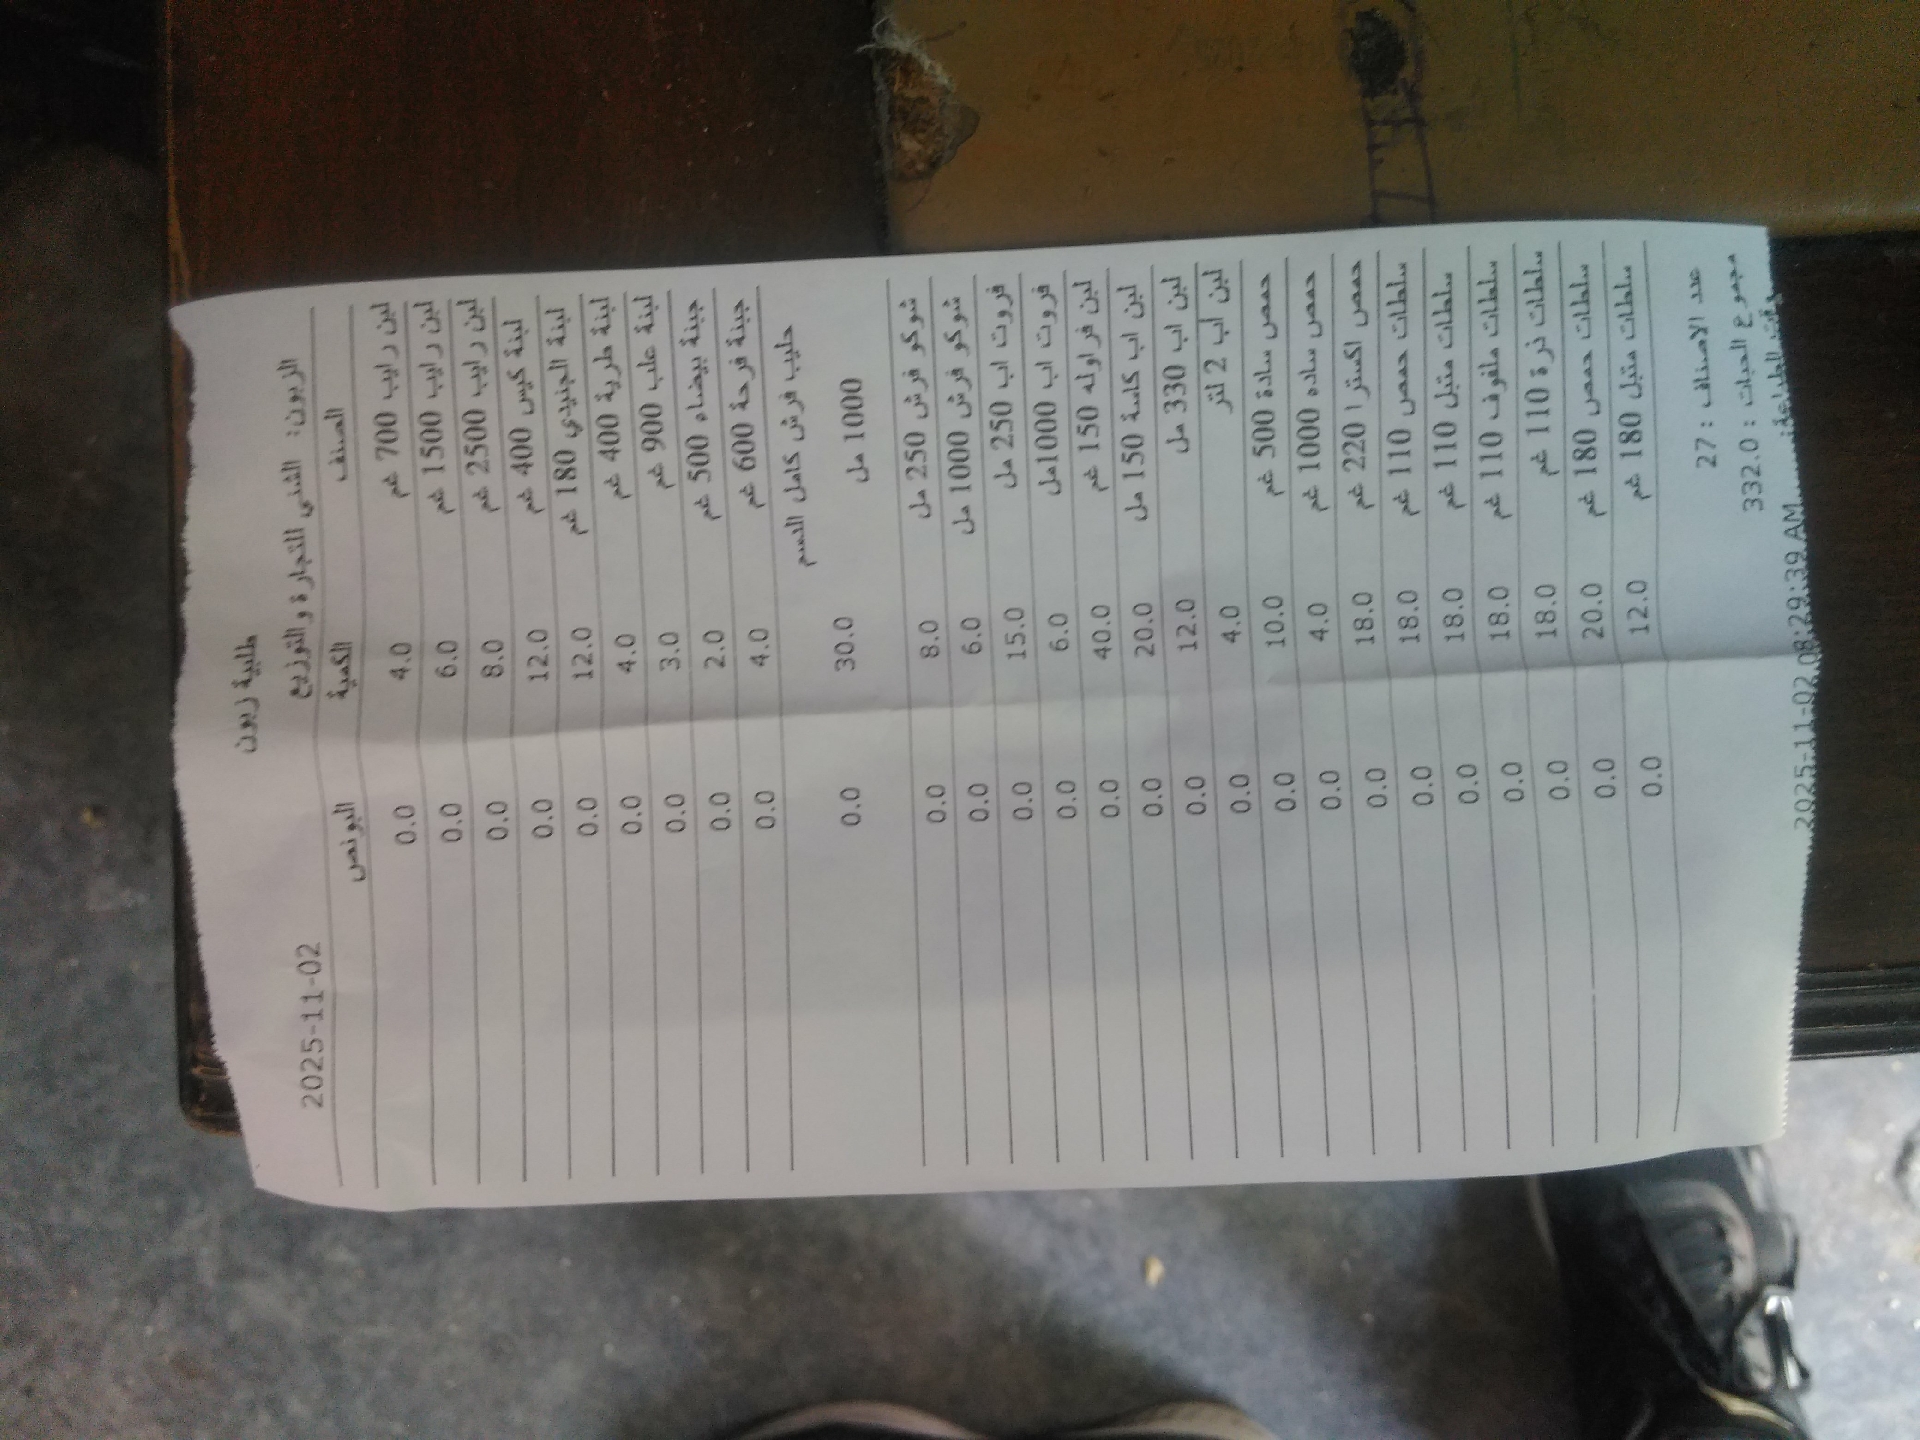 طلبية زبون
الزبون: الشني التجارة و التوزيع 2025-11-02
الصنف الكمية البونص
لبن رايب 700 غم 4.0 0.0
لبن رايب 1500 غم 6.0 0.0
لبن رايب 2500 غم 8.0 0.0
لبنة كيس 400 غم 12.0 0.0
لبنة الجنيدي 180 غم 12.0 0.0
لبنة طرية 400 غم 4.0 0.0
لبنة علب 900 غم 3.0 0.0
جبنة بيضاء 500 غم 2.0 0.0
جبنة فرحة 600 غم 4.0 0.0
حليب فرش كامل الدسم
1000 مل 30.0 0.0
شوكو فرش 250 مل 8.0 0.0
شوكو فرش 1000 مل 6.0 0.0
فروت اب 250 مل 15.0 0.0
فروت اب 1000مل 6.0 0.0
لبن فراوله 150 غم 40.0 0.0
لبن اب كاسة 150 مل 20.0 0.0
لبن اب 330 مل 12.0 0.0
لبن اب 2 لتر 4.0 0.0
حمص سادة 500 غم 10.0 0.0
حمص ساده 1000 غم 4.0 0.0
حمص اكسترا 220 غم 18.0 0.0
سلطات حمص 110 غم 18.0 0.0
سلطات متبل 110 غم 18.0 0.0
سلطات ملفوف 110 غم 18.0 0.0
سلطات ذرة 110 غم 18.0 0.0
سلطات حمص 180 غم 20.0 0.0
سلطات متبل 180 غم 12.0 0.0
عدد الاصناف : 27
مجموع الحبات : 332.0
وقت الطباعة: 2025-11-02 08:29:39 AM